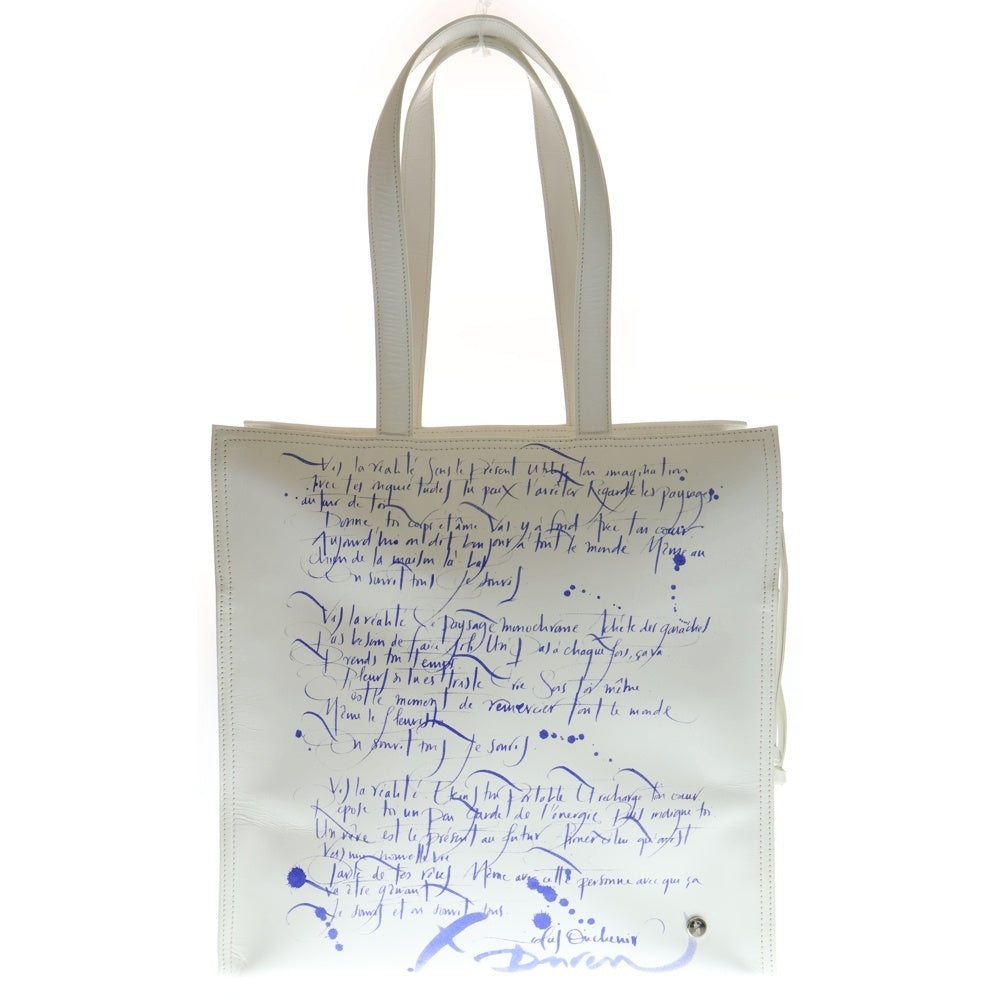 Vis la réalité Sens le présent Utilise ton imagination
Avec tes inquiétudes tu peux t'arrêter Regarde les paysages
autour de toi
Donne ton corps et âme Vas y à fond Avec ton cœur
Aujourd'hui on dit bonjour à tout le monde Même au
chien de la maison là bas
On sourit tous Je souris
Vis la réalité paysage monochrome Achète des gouaches
Pas besoin de faire Un pas à chaque fois, ça va
Prends ton temps
Pleurs si tu es triste Crie Sois toi même
c'est le moment de remercier tout le monde
Même le fleuriste
On sourit tous Je souris
Vis la réalité Eteins ton portable Et recharge ton cœur
Repose toi un peu Garde de l'énergie Plus indigne toi
Un rêve est le présent au futur celui qui
Vers une nouvelle
Parle de tes rêves Même avec cette personne avec qui ça
va être gênant
Je souris et on sourit tous